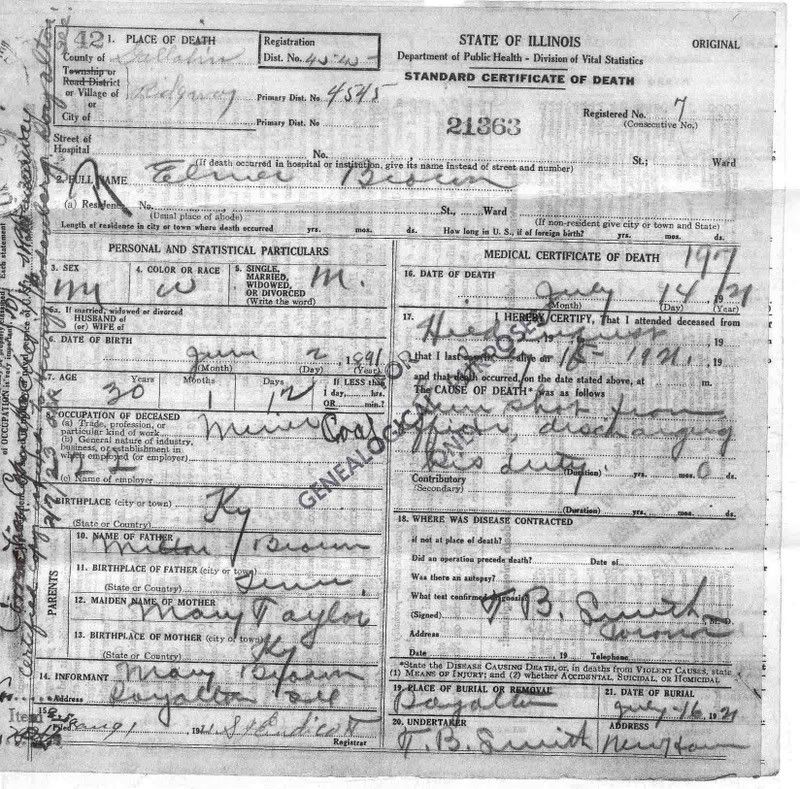 42 1. PLACE OF DEATH
County of Gallatin
Township or
Road District
or Village of Ridgway
or
City of
Street of
Hospital
Registration
Dist. No.
Primary Dist. No. 4545
Primary Dist. No.
STATE OF ILLINOIS
Department of Public Health - Division of Vital Statistics
STANDARD CERTIFICATE OF DEATH
ORIGINAL
21363
Registered No. 7
(Consecutive No.)
No. St.; Ward
(If death occurred in hospital or institution, give its name instead of street and number)
2. FULL NAME Elmer Brown
(a) Residence. No. St., Ward
(Usual place of abode) (If non-resident give city or town and State)
Length of residence in city or town where death occurred yrs. mos. ds. How long in U. S., if of foreign birth? yrs. mos. ds.
PERSONAL AND STATISTICAL PARTICULARS
3. SEX
M
4. COLOR OR RACE
W
5. SINGLE,
MARRIED,
WIDOWED,
OR DIVORCED
(Write the word)
M.
5a. If married, widowed or divorced
HUSBAND of
(or) WIFE of
6. DATE OF BIRTH
June 2, 1891
(Month) (Day) (Year)
7. AGE Years Months Days If LESS than
30 1 12
1 day,....hrs.
OR....min.?
8. OCCUPATION OF DECEASED
(a) Trade, profession, or
particular kind of work Miner Coal
(b) General nature of industry,
business, or establishment in
which employed (or employer)
(c) Name of employer
9. BIRTHPLACE (city or town) Ky
(State or Country)
PARENTS
10. NAME OF FATHER
Milton Brown
11. BIRTHPLACE OF FATHER (city or town)
(State or Country) Tenn,
12. MAIDEN NAME OF MOTHER
Mary Taylor
13. BIRTHPLACE OF MOTHER (city or town)
(State or Country) Ky
14. INFORMANT Mary Brown
Address Royalton Ill
15.
Filed Aug 1, 19
Registrar
MEDICAL CERTIFICATE OF DEATH 197
16. DATE OF DEATH
July 14 1921
(Month) (Day) (Year)
17. I HEREBY CERTIFY, That I attended deceased from
Held inquest
that I last saw alive on 15 1921.
and that death occurred, on the date stated above, at m.
The CAUSE OF DEATH* was as follows
Gun shot from
officer, discharging
his duty.
(Duration) yrs. mos. 0 ds.
Contributory
(Secondary)
(Duration) yrs. mos. ds.
18. WHERE WAS DISEASE CONTRACTED
if not at place of death?
Did an operation precede death? Date of
Was there an autopsy?
What test confirmed diagnosis?
(Signed) T. B. Smith M. D.
Address Coroner
Date , 19 Telephone
*State the DISEASE CAUSING DEATH, or, in deaths from VIOLENT CAUSES, state
(1) MEANS OF INJURY; and (2) whether ACCIDENTAL, SUICIDAL, OR HOMICIDAL
19. PLACE OF BURIAL OR REMOVAL
Royalton
21. DATE OF BURIAL
July 16, 1921
20. UNDERTAKER
T. B. Smith
ADDRESS
FOR
GENEALOGICAL PURPOSES
ONLY